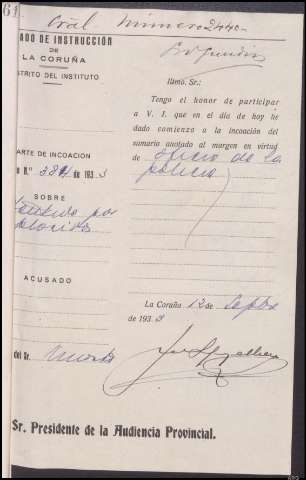 61
Oral número 2440
ADO DE INSTRUCCIÓN
DE
LA CORUÑA
STRITO DEL INSTITUTO
ARTE DE INCOACIÓN
o N.° 384 de 193 3
SOBRE
por
ACUSADO
del Sr.
Iltmo. Sr.:
Tengo el honor de participar
a V. I. que en el día de hoy he
dado comienzo a la incoación del
sumario anotado al margen en virtud
de oficio de la
policía
La Coruña 12 de Septbre
de 193 3
Sr. Presidente de la Audiencia Provincial.